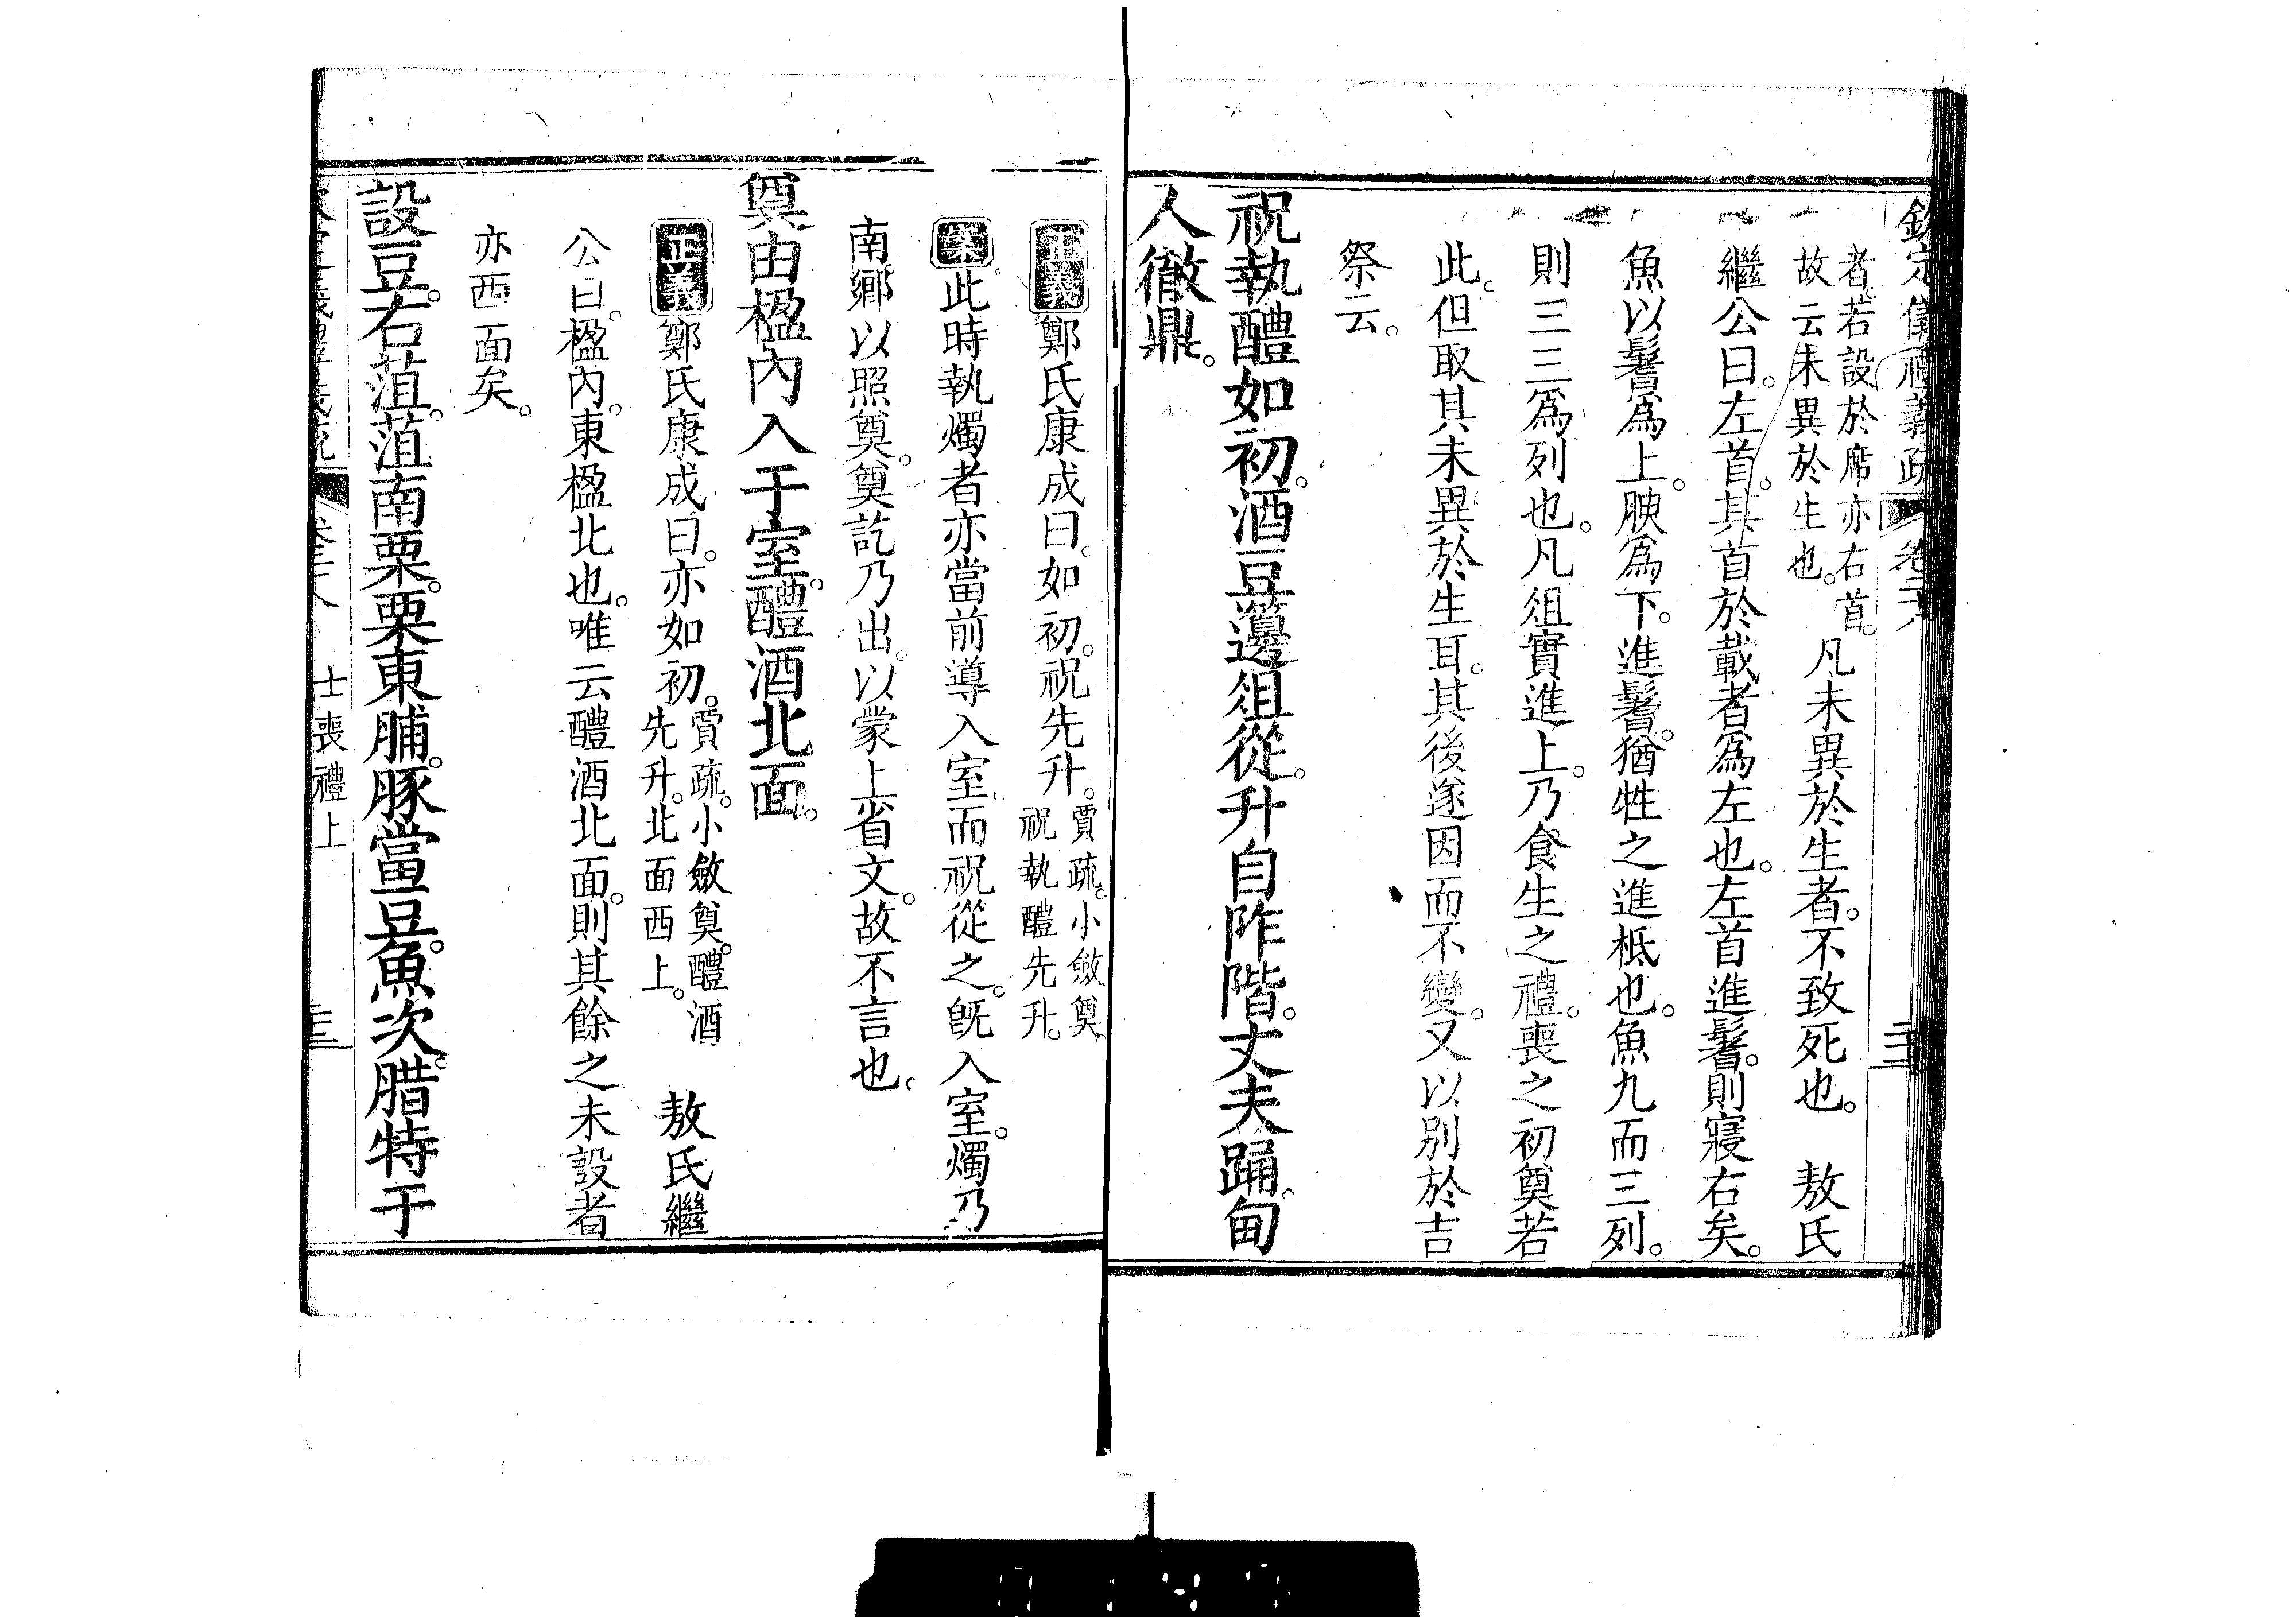 欽定儀禮義疏 卷二十八
者。若設於席亦右首。
故云未異於生也。
凡未異於生者。不致死也。 敖氏
繼公曰。左首。其首於載者為左也。左首進鬐。則寢右矣。
魚以鬐為上。腴為下。進鬐。猶牲之進柢也。魚九而三列。
則三三為列也。凡俎實進上。乃食生之禮。喪之初奠若
此。但取其未異於生耳。其後遂因而不變。又以別於吉
祭云。
祝執醴如初。酒豆籩俎從。升自阼階。丈夫踊。甸
人徹鼎。
正義鄭氏康成曰。如初。祝先升。
賈疏。小斂奠。
祝執醴先升。
案此時執燭者亦當前導入室。而祝從之。旣入室。燭乃
南鄉以照奠。奠訖乃出。以蒙上省文。故不言也。
奠由楹內入于室。醴酒北面。
正義鄭氏康成曰。亦如初。
賈疏。小斂奠。醴酒
先升。北面西上。
敖氏繼
公曰。楹內。東楹北也。唯云醴酒北面。則其餘之未設者
亦西面矣。
設豆。右菹。菹南栗。栗東脯。豚當豆。魚次。腊特于
士喪禮上